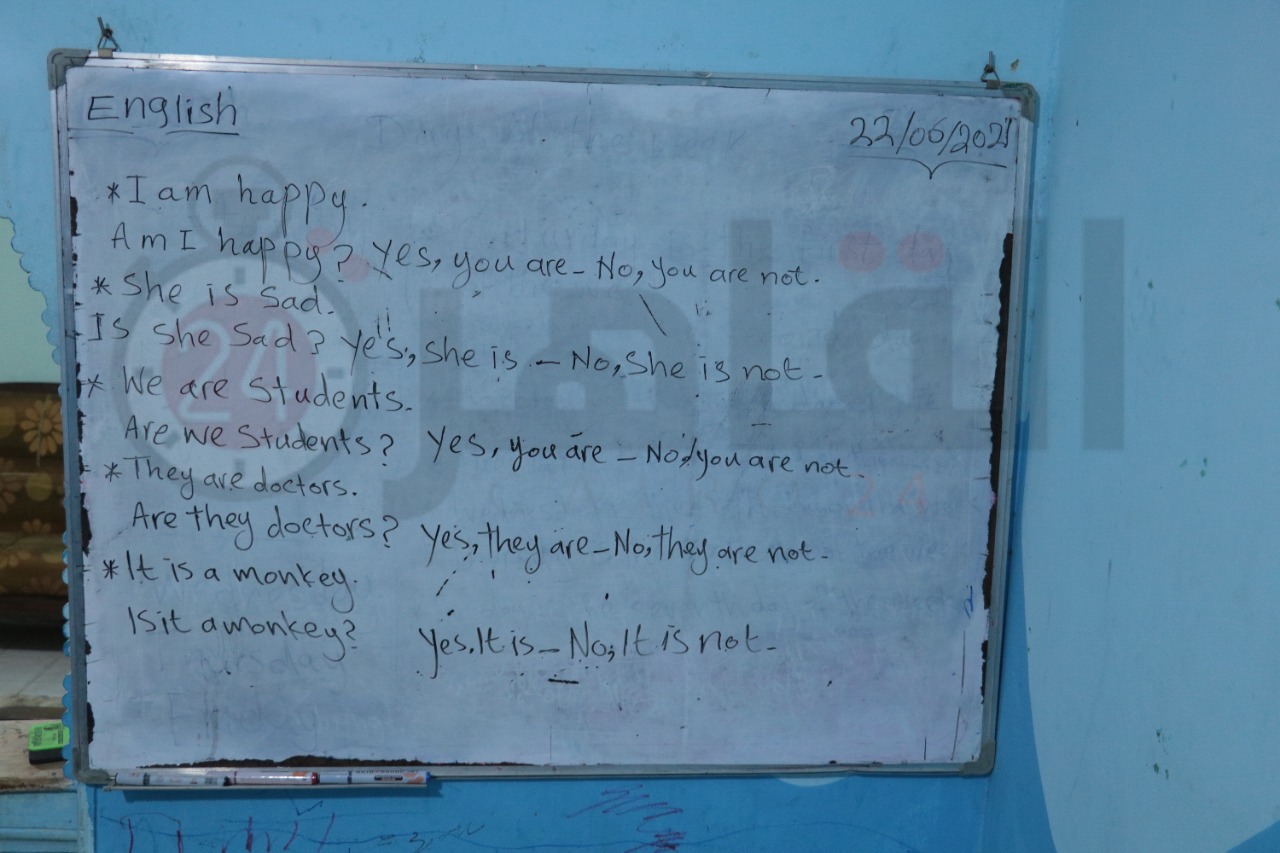 English
22/06/2021
* I am happy.
Am I happy? Yes, you are - No, you are not.
* She is Sad.
Is She Sad? Yes, She is - No, She is not -
* We are Students.
Are we Students? Yes, you are - No, you are not.
* They are doctors.
Are they doctors? Yes, they are - No, they are not -
* It is a monkey.
Is it a monkey? Yes. It is - No, It is not -
القاهرة
24